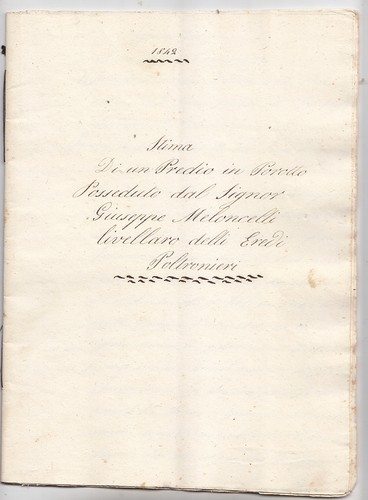 1842
Stima
Di un Predio in Porotto
Posseduto dal Signor
Giuseppe Meloncelli
livellaro delli Eredi
Poltronieri